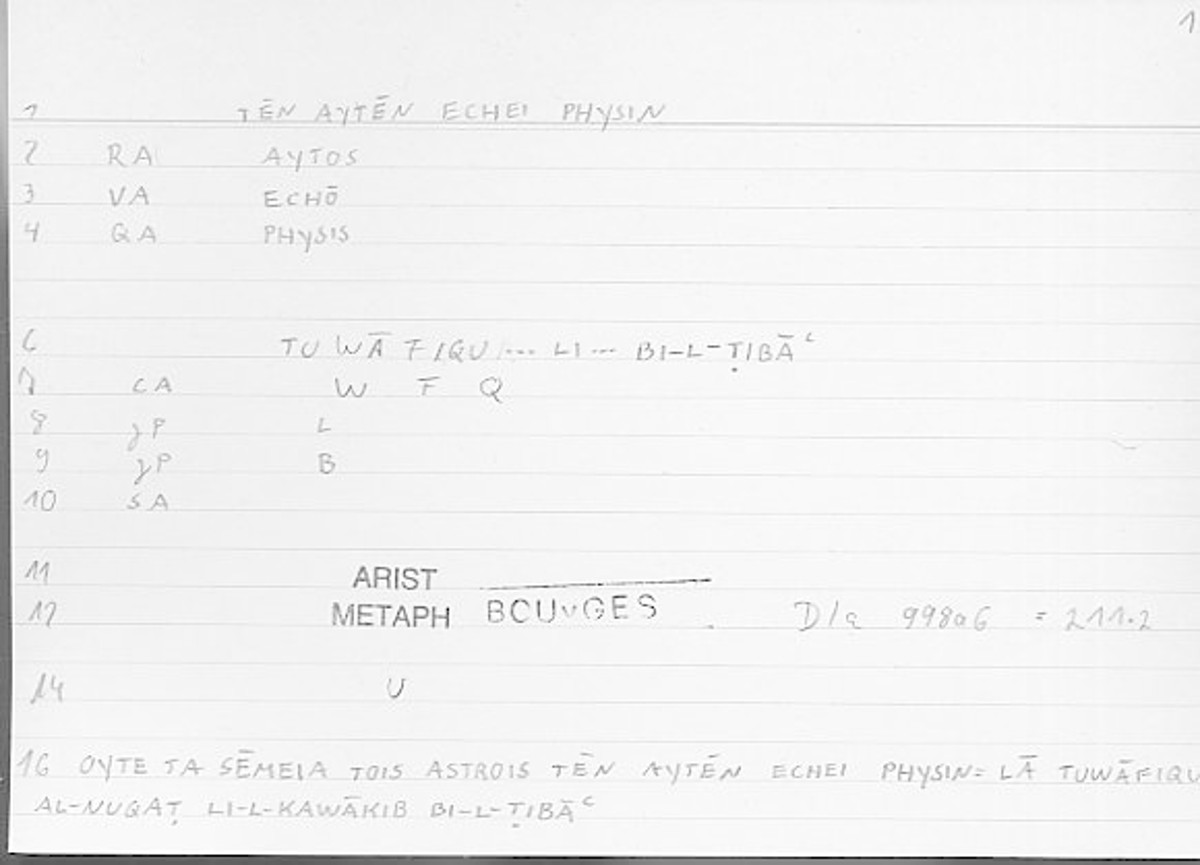 1
1 TĒN AYTĒN ECHEI PHYSIN
2 RA AYTOS
3 VA ECHŌ
4 QA PHYSIS
6 TUWĀFIQU ... LI ... BI-L-ṬIBĀʿ
7 CA W F Q
8 γP L
9 γP B
10 SA
11 ARIST
12 METAPH BOUYGES D/a 998a6 = 211.2
14 U
16 OYTE TA SĒMEIA TOIS ASTROIS TĒN AYTĒN ECHEI PHYSIN = LĀ TUWĀFIQU
AL-NUQAṬ LI-L-KAWĀKIB BI-L-ṬIBĀʿ